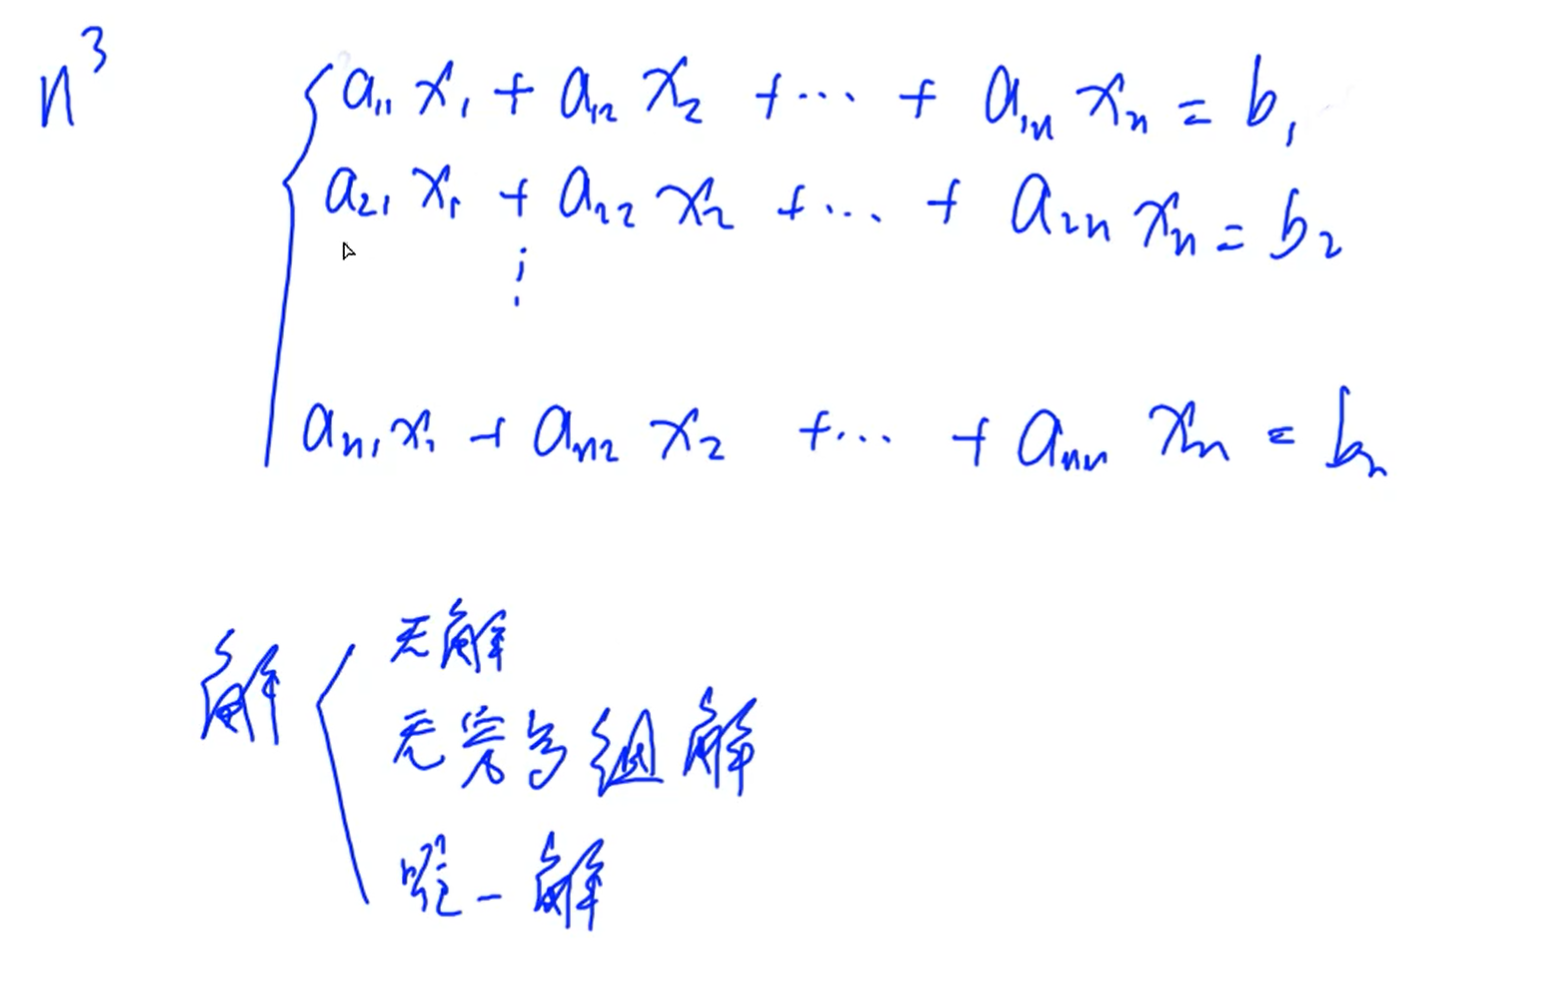 n³
a₁₁ x₁ + a₁₂ x₂ + ⋯ + a₁ₙ xₙ = b₁
a₂₁ x₁ + a₂₂ x₂ + ⋯ + a₂ₙ xₙ = b₂
⋮
aₙ₁ x₁ + aₙ₂ x₂ + ⋯ + aₙₙ xₙ = bₙ
解
无解
无穷多组解
唯一解